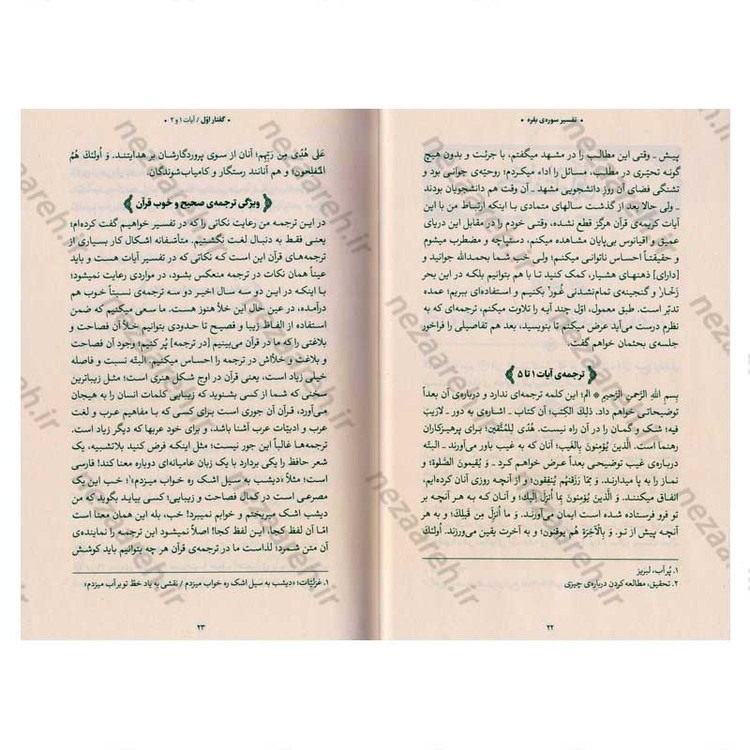 • تفسیر سوره‌ی بقره •
پیش ـ وقتی این مطالب را در مشهد میگفتم، با جرئت و بدون هیچ
گونه تحیّری در مطلب، مسائل را اداء میکردم؛ روحیّه‌ی جوانی بود و
تشنگی فضای آن روزِ دانشجویی مشهد ـ آن وقت هم دانشجویان بودند
ـ ولی حالا بعد از گذشت سالهای متمادی با اینکه ارتباط من با این
آیات کریمه‌ی قرآن هرگز قطع نشده، وقتی خودم را در مقابل این دریای
عمیق و اقیانوس بی‌پایان مشاهده میکنم، دستپاچه و مضطرب میشوم
و حقیقتاً احساس ناتوانی میکنم؛ ولی خب شما بحمدالله جوانید و
[دارای] ذهنهای هشیار، کمک کنید تا هم بتوانیم بلکه در این بحر
زَخّار۱ و گنجینه‌ی تمام‌نشدنی غَور۲ بکنیم و استفاده‌ای ببریم؛ عمده
تدبّر است. طبق معمول، اوّل چند آیه را تلاوت میکنم، ترجمه‌ای که به
نظرم درست می‌آید عرض میکنم تا بنویسید، بعد هم تفاصیلی را فراخور
جلسه‌ی بحثمان خواهم گفت.
ترجمه‌ی آیات ۱ تا ۵
بِسمِ اللهِ الرَّحمنِ الرَّحیمِ * الم؛ این کلمه ترجمه‌ای ندارد و درباره‌ی آن بعداً
توضیحاتی خواهم داد. ذٰلِکَ الکِتٰبُ؛ آن کتاب ـ اشاره‌ی به دور ـ لارَیبَ
فیه؛ شک و گمان را در آن راه نیست. هُدًی لِلمُتَّقینَ؛ برای پرهیزکاران
رهنما است. الَّذینَ یُؤمِنونَ بِالغَیبِ؛ آنان که به غیب باور می‌آورند ـ البتّه
درباره‌ی غیب توضیحی بعداً عرض خواهم کرد ـ وَ یُقیمونَ الصَّلٰوةَ؛ و
نماز را به پا میدارند. وَ مِمّا رَزَقنٰهُم یُنفِقونَ؛ و از آنچه روزی آنان کرده‌ایم،
انفاق میکنند. وَ الَّذینَ یُؤمِنونَ بِما اُنزِلَ اِلَیکَ؛ و آنان که به هر آنچه بر
تو فرو فرستاده شده است ایمان می‌آورند. وَ ما اُنزِلَ مِن قَبلِکَ؛ و به هر
آنچه پیش از تو. وَ بِالأٰخِرَةِ هُم یوقِنونَ؛ و به آخرت یقین می‌ورزند. اُولٰئِکَ
۱. پُرآب، لبریز
۲. تحقیق، مطالعه کردن درباره‌ی چیزی
۲۲
• گفتار اوّل / آیات ۱ و ۲ •
عَلیٰ هُدًی مِن رَبِّهِم؛ آنان از سوی پروردگارشان بر هدایتند. وَ اُولٰئِکَ هُمُ
المُفلِحونَ؛ و هم آنانند رستگار و کامیاب‌شوندگان.
ویژگی ترجمه‌ی صحیح و خوب قرآن
در این ترجمه من رعایت نکاتی را که در تفسیر خواهیم گفت کرده‌ام؛
یعنی فقط به دنبال لغت نگشتیم. متأسّفانه اشکال کار بسیاری از
ترجمه‌های قرآن این است که نکاتی که در تفسیر آیات هست و باید
عیناً همان نکات در ترجمه منعکس بشود، در مواردی رعایت نمیشود؛
با اینکه در این دو سه سال اخیر دو سه ترجمه‌ی نسبتاً خوب هم
درآمده، در عین حال این خلأ هنوز هست. ما سعی میکنیم که ضمن
استفاده از الفاظ زیبا و فصیح تا حدودی بتوانیم خلأ آن فصاحت و
بلاغتی را که ما در قرآن می‌بینیم [در ترجمه] پُر کنیم؛ وجود آن فصاحت و
بلاغت و خلأاش در ترجمه را احساس میکنیم. البتّه نسبت و فاصله
خیلی زیاد است، یعنی قرآن در اوج شکل هنری است؛ مثل زیباترین
سخنی که شما از کسی بشنوید که زیبایی کلمات انسان را به هیجان
می‌آورد، قرآن آن جوری است برای کسی که با مفاهیم عرب و لغت
عرب و ادبیّات عرب آشنا باشد، و برای خود عربها که دیگر زیاد است.
ترجمه‌ها غالباً این جور نیست؛ مثل اینکه فرض کنید بلاتشبیه، یک
شعر حافظ را یکی بردارد با یک زبان عامیانه‌ای دوباره معنا کند! فارسی
است؛ مثلاً «دیشب به سیل اشک ره خواب میزدم»۱؛ خب این یک
مصرعی است در کمال فصاحت و زیبایی؛ کسی بیاید بگوید که من
دیشب اشک میریختم و خوابم نمیبرد! خب، بله این همان معنا است
امّا آن لفظ کجا، این لفظ کجا! اصلاً نمیشود این ترجمه را نماینده‌ی
آن متن شمرد؛ لذاست ما در ترجمه‌ی قرآن هر چه بتوانیم باید کوشش
۱. غزلیّات؛ «دیشب به سیل اشک ره خواب میزدم / نقشی به یاد خطّ تو بر آب میزدم»
۲۳
nezaareh.ir